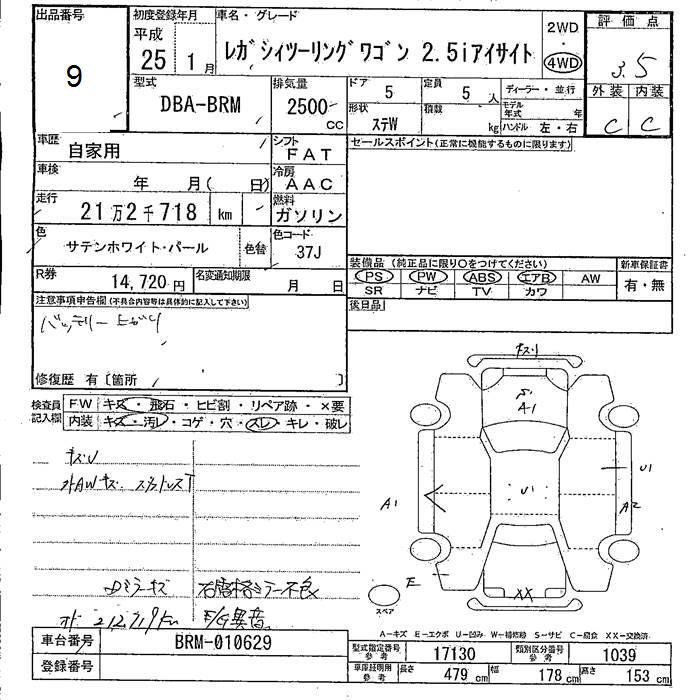 出品番号
9
初度登録年月
平成
25 1月
車名・グレード
レガシィツーリングワゴン 2.5iアイサイト
2WD
・
4WD
評価点
3.5
型式
DBA-BRM
排気量
2500 CC
ドア
5
定員
5 人
形状
ステW
積載
kg
ディーラー・並行
モデル年式 年
ハンドル 左・右
外装 内装
C C
車歴
自家用
シフト
FAT
セールスポイント(正常に機能するものに限ります)
車検
年 月( 日)
冷房
AAC
走行
21万2千718 km
燃料
ガソリン
色
サテンホワイト・パール
色替
色コード
37J
装備品 (純正品に限り○をつけてください)
新車保証書
PS PW ABS エアB AW
有・無
SR ナビ TV カワ
R券
14,720円
名変通知期限
月 日
後日品
注意事項申告欄(不具合内容等は具体的に記入して下さい)
バッテリー上がり
修復歴 有〔箇所 〕
検査員記入欄
FW キズ・飛石・ヒビ割・リペア跡・×要
内装 キズ・汚レ・コゲ・穴・スレ・キレ・破レ
キズU
外AWキズ スタットレスT
Dミラーキズ
右電格ミラー不良
オド 212719km
E/G異音
キズU
A1
U1
U1
A1
A2
E
XX
スペア
A-キズ E-エクボ U-凹み W-補修跡 S-サビ C-腐食 XX-交換済
車台番号
BRM-010629
登録番号
型式指定番号 参考
17130
類別区分番号 参考
1039
車庫証明用 参考
長さ 479 cm
幅 178 cm
高さ 153 cm